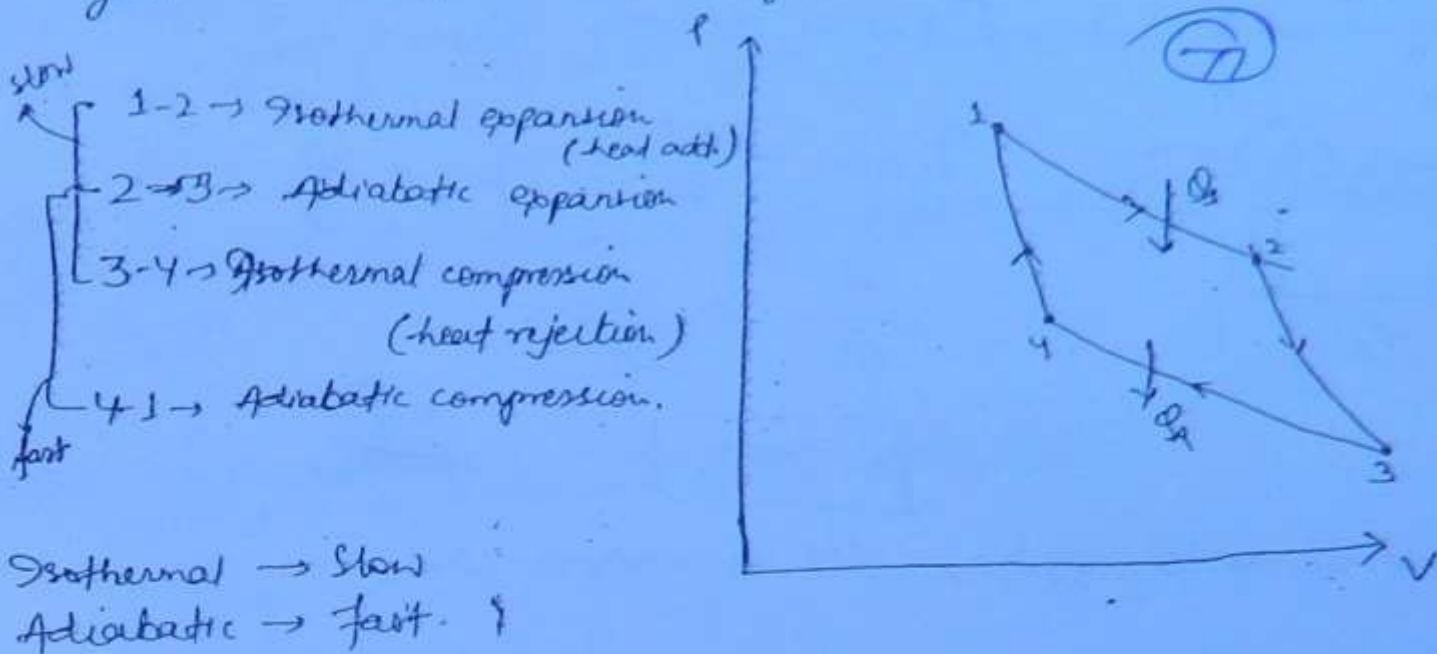 slow
1-2 → Isothermal expansion
(heat add.)
2→3 → Adiabatic expansion
3-4 → Isothermal compression
(heat rejection)
4-1 → Adiabatic compression.
fast
Isothermal → Slow
Adiabatic → fast.
P
1
Qs
2
4
QR
3
V